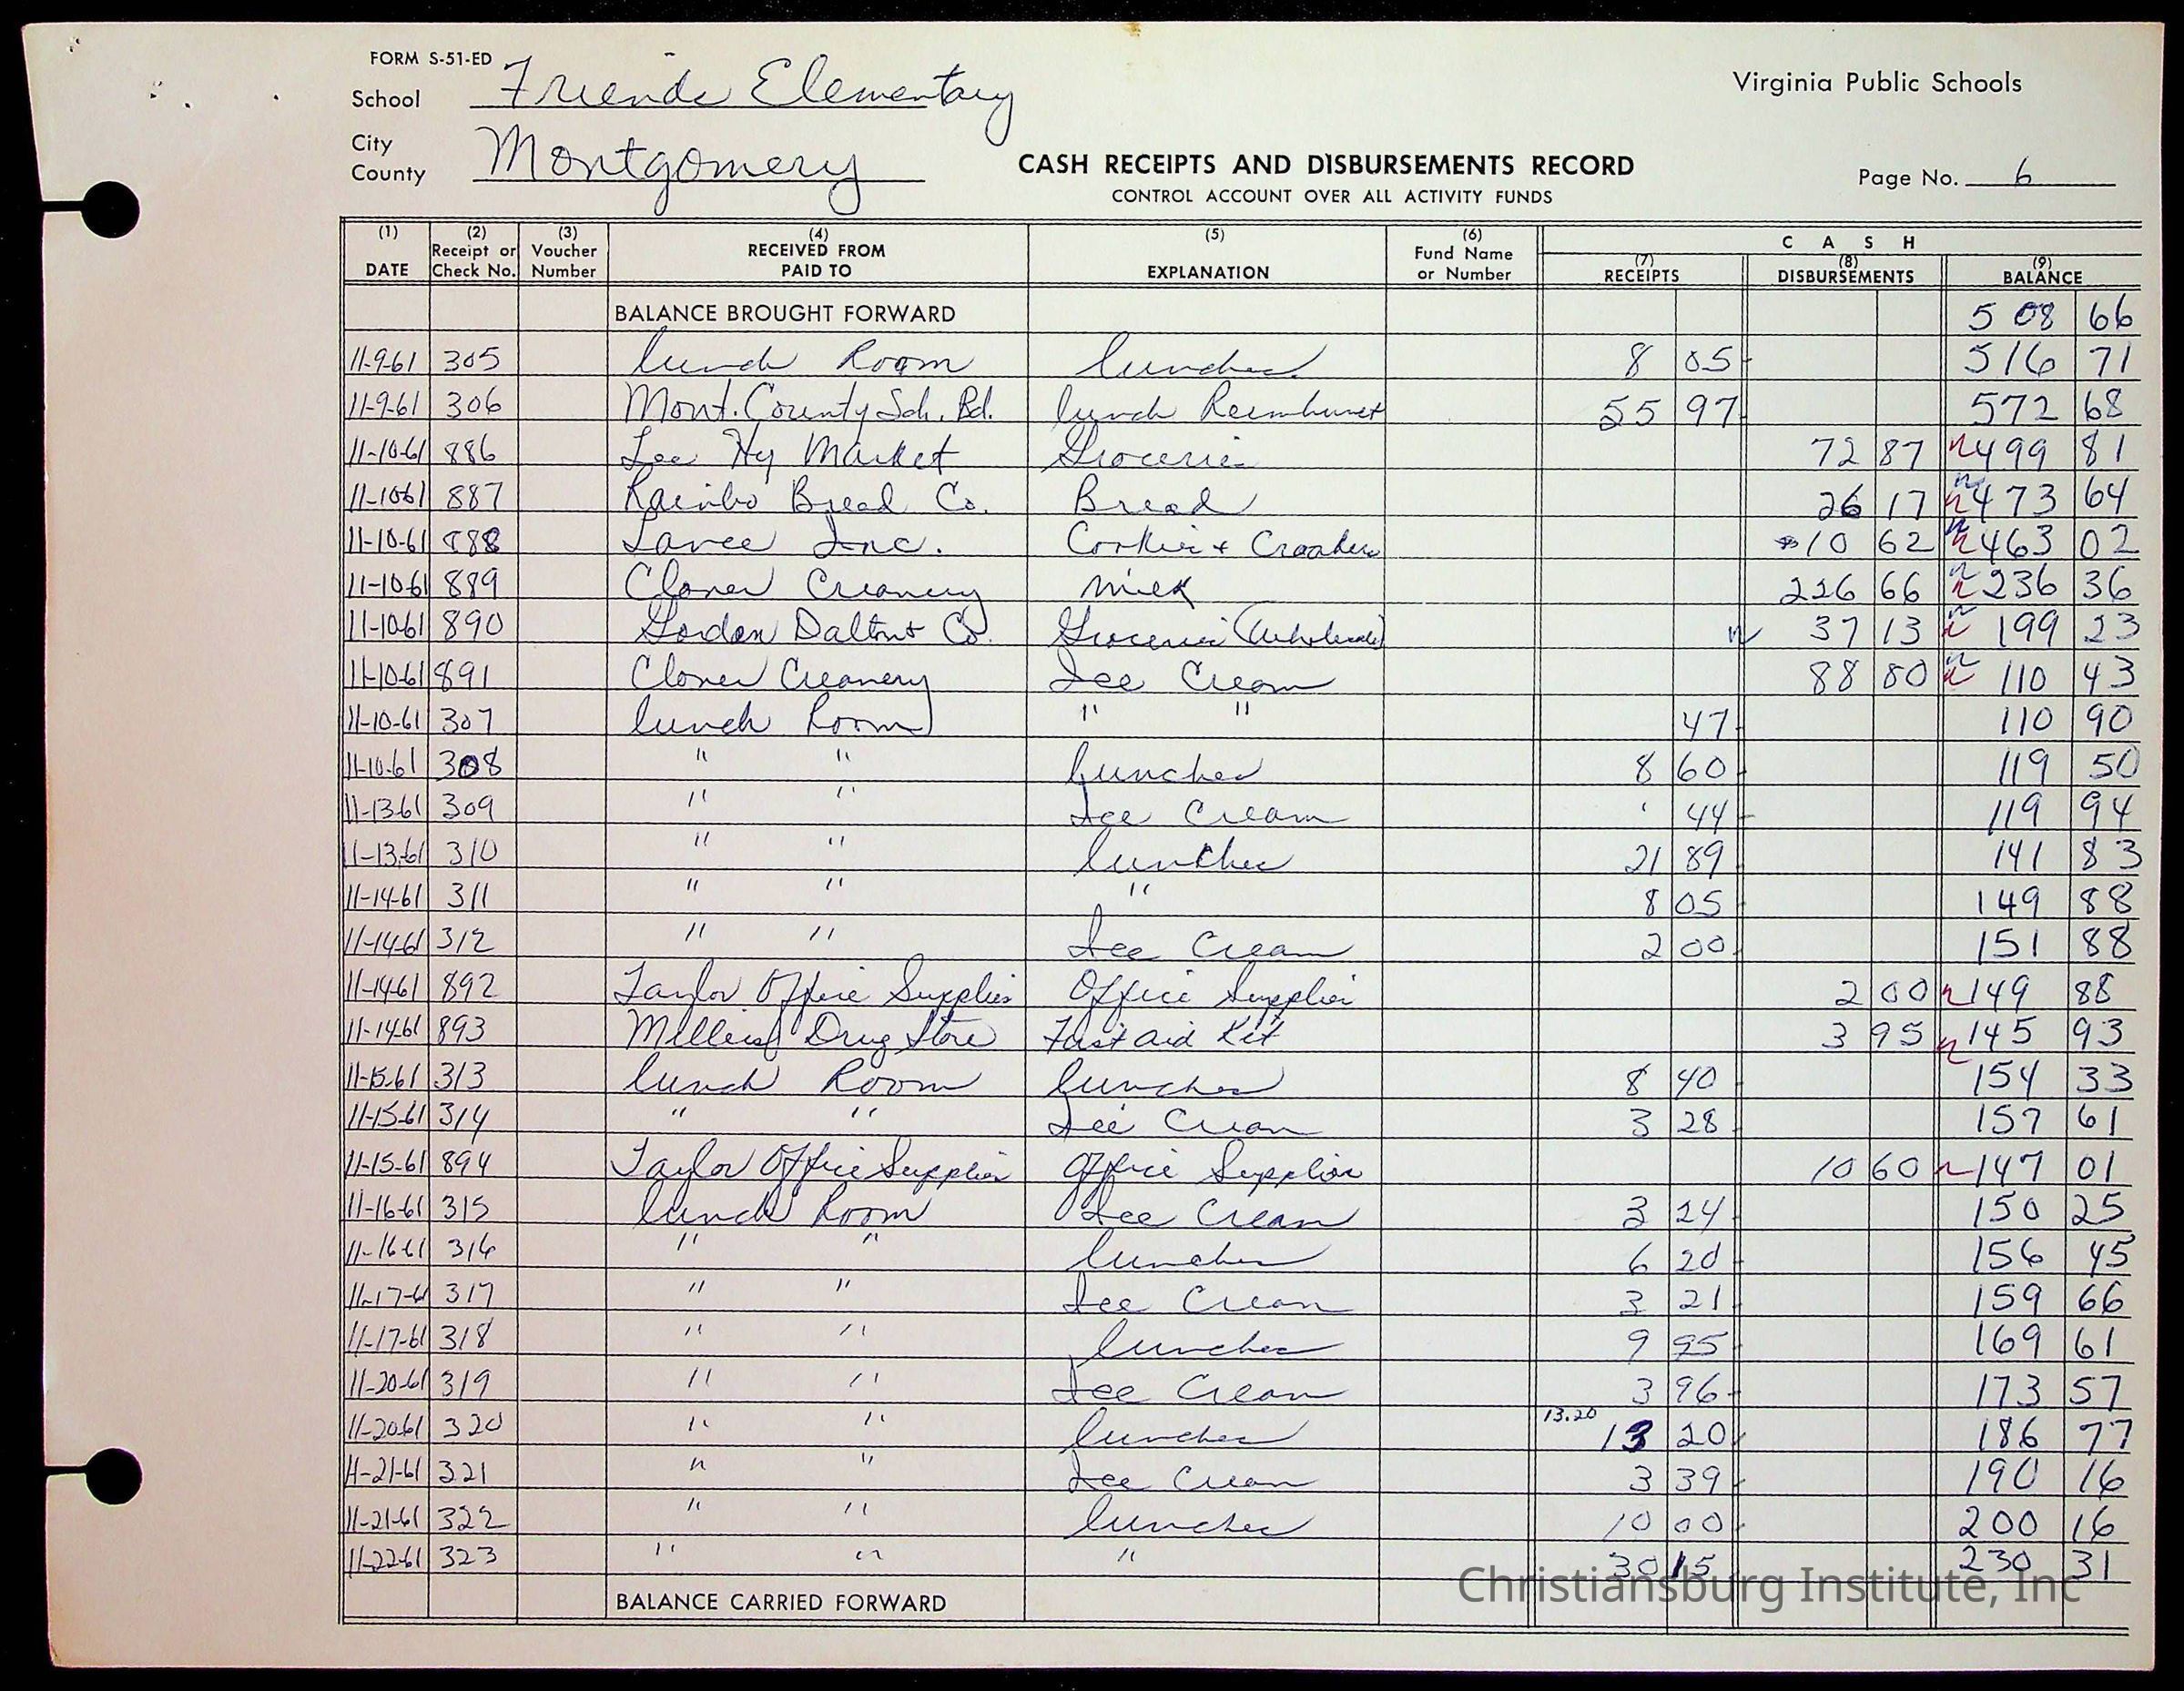 FORM S-51-ED
School Friends Elementary
Virginia Public Schools
City
County Montgomery
CASH RECEIPTS AND DISBURSEMENTS RECORD
CONTROL ACCOUNT OVER ALL ACTIVITY FUNDS
Page No. 6
(1) DATE (2) Receipt or Check No. (3) Voucher Number (4) RECEIVED FROM PAID TO (5) EXPLANATION (6) Fund Name or Number CASH (7) RECEIPTS (8) DISBURSEMENTS (9) BALANCE
BALANCE BROUGHT FORWARD 508 66
11-9-61 305 lunch Room lunches 8 05 516 71
11-9-61 306 Mont. County Sch. Bd. lunch 55 97 572 68
11-10-61 886 Lee Hy Market Groceries 72 87 499 81
11-10-61 887 Rainbo Bread Co. Bread 26 17 473 64
11-10-61 888 Lance Inc. Cookies + Crackers 10 62 463 02
11-10-61 889 Clover Creamery milk 226 66 236 36
11-10-61 890 Dalton Co. Groceries (Wholesale) 37 13 199 23
11-10-61 891 Clover Creamery Ice Cream 88 80 110 43
11-10-61 307 lunch Room " " 47 110 90
11-10-61 308 " " lunches 8 60 119 50
11-13-61 309 " " Ice Cream 44 119 94
11-13-61 310 " " lunches 21 89 141 83
11-14-61 311 " " " 8 05 149 88
11-14-61 312 " " Ice Cream 2 00 151 88
11-14-61 892 Taylor Office Supplies Office Supplies 2 00 149 88
11-14-61 893 Drug Store Fast aid Kit 3 95 145 93
11-15-61 313 lunch Room lunches 8 40 154 33
11-15-61 314 " " Ice Cream 3 28 157 61
11-15-61 894 Taylor Office Supplies Office Supplies 10 60 147 01
11-16-61 315 lunch Room Ice Cream 3 24 150 25
11-16-61 316 " " lunches 6 20 156 45
11-17-61 317 " " Ice Cream 3 21 159 66
11-17-61 318 " " lunches 9 95 169 61
11-20-61 319 " " Ice Cream 3 96 173 57
11-20-61 320 " " lunches 13.20 13 20 186 77
11-21-61 321 " " Ice Cream 3 39 190 16
11-21-61 322 " " lunches 10 00 200 16
11-22-61 323 " " " 30 15 230 31
BALANCE CARRIED FORWARD
Christiansburg Institute, Inc